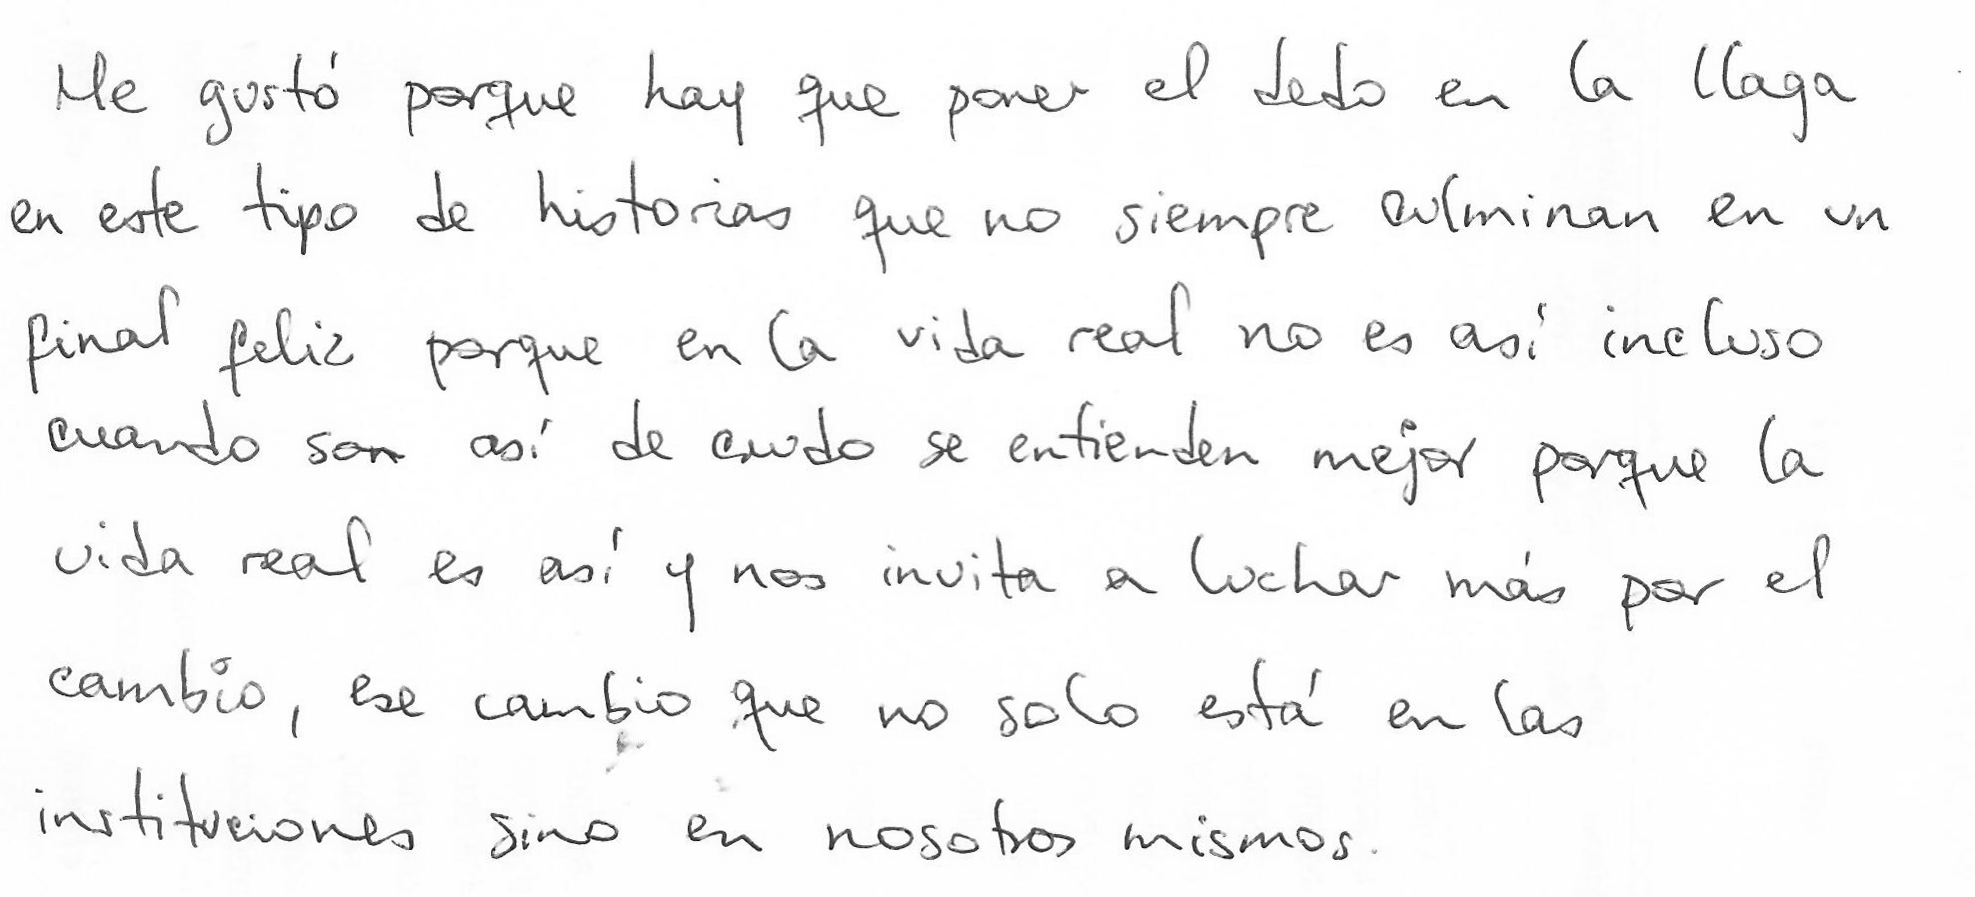 Me gustó porque hay que poner el dedo en la llaga
en este tipo de historias que no siempre culminan en un
final feliz porque en la vida real no es así incluso
cuando son así de crudo se entienden mejor porque la
vida real es así y nos invita a luchar más por el
cambio, ese cambio que no solo está en las
instituciones sino en nosotros mismos.